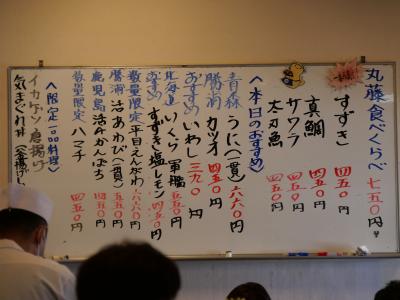 丸藤食べくらべ 七五0円
すずき 四五0円
真鯛 四五0円
サワラ 四五0円
太刀魚 四五0円
〈本日のおすすめ〉
青森 うに(一貫) 六六0円
勝浦 カツオ 四五0円
おすすめ いわし 三九0円
北海道 いくら軍艦 五五0円
おすすめ すずき塩レモン 四五0円
数量限定 平目えんがわ 六六0円
勝浦 活あわび(一貫) 五五0円
鹿児島 活〆かんぱち 五五0円
数量限定 ハマチ 四五0円
〈限定一品料理〉
イカゲソ唐揚げ
気まぐれ丼